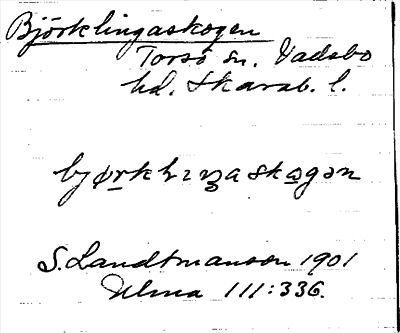 Björklingaskogen
Torsö sn. Vadsbo
hd. Skarab. l.
bjørklıŋaskogən
S. Landtmanson 1901
Ulma 111:336.